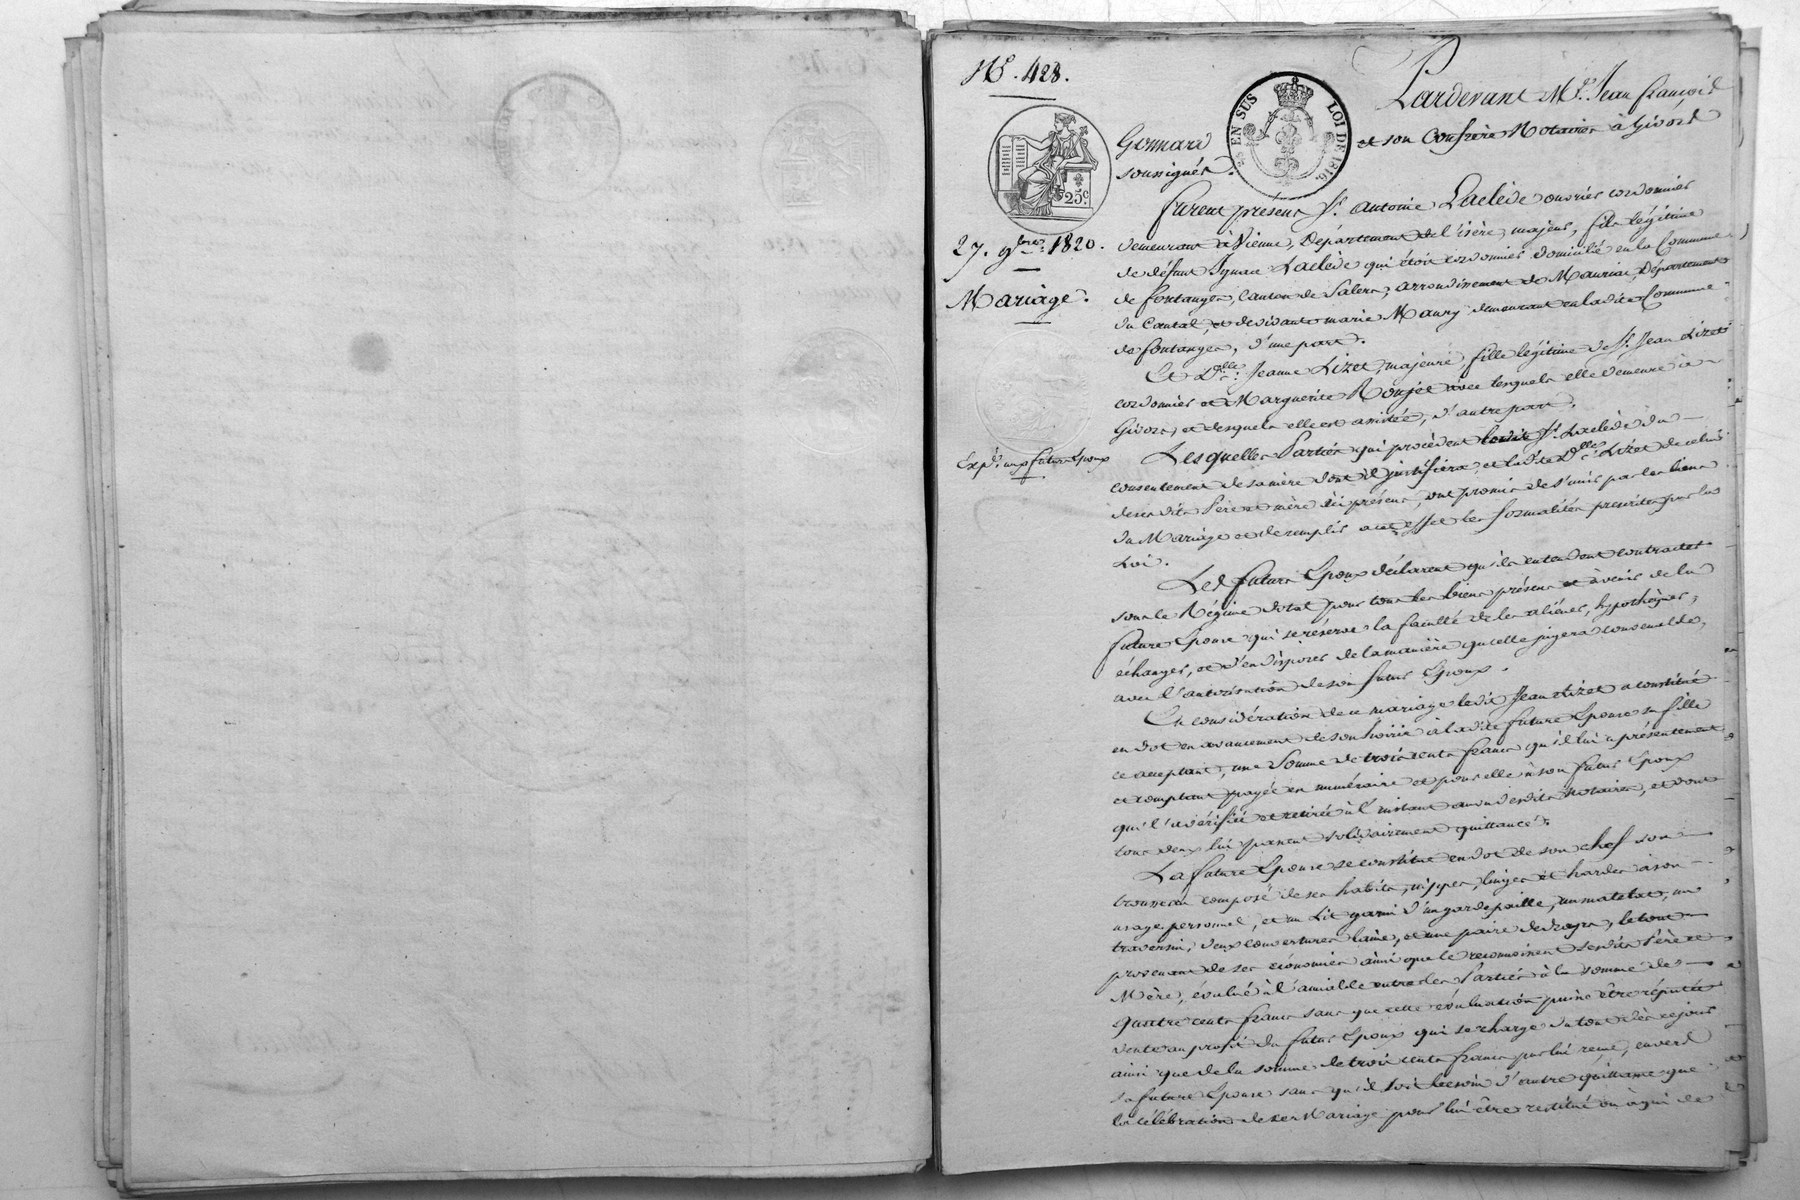 N.º 428.
EN SUS LOI DE 1816.
25 c.
27. 9bre. 1820.
Mariage.
Expé. aux futurs Epoux
Pardevant Me. Jean François
Gonnard et son Confrère Notaires à Givors
soussignés.
furent présens Sr. Antoine Laclède ouvrier cordonnier
demeurant à Vienne, Département de l'isère, majeur, fils légitime
de défunt Laclède qui étoit cordonnier domicilié en la Commune
de fontanges, Canton de Salers, arrondissement de Mauriac, Département
du Cantal, et de vivante marie Maury demeurant en ladite Commune
de fontanges, d'une part.
Et Dlle. Jeanne Lizet, majeure, fille légitime de Sr. Jean Lizet
cordonnier et Marguerite Roujet avec lesquels elle demeure à
Givors, et desquels elle est assistée, d'autre part.
Lesquelles Parties qui procèdent ledit Sr. Laclède du
consentement de sa mère dont il justifiera, et ladite Dlle. Lizet de celui
de ses dits Père et mère ici présens, ont promis de s'unir par les liens
du Mariage et de remplir à cet effet les formalités prescrites par la
Loi.
Les futurs Epoux déclarent qu'ils entendent contracter
sous le Régime dotal pour tous les biens présens et à venir de la
future Epouse qui se réserve la faculté de les aliéner, hypothéquer,
échanger, et d'en disposer de la manière qu'elle jugera convenable,
avec l'autorisation de son futur Epoux.
En considération de ce mariage ledit Jean Lizet a constitué
en dot en avancement de son hoirie à ladite future Epouse sa fille
ce acceptant, une somme de trois cents francs qu'il lui a présentement
et comptant payée en numéraire et pour elle à son futur Epoux
qui l'a vérifiée et retirée à l'instant au vu desdits Notaires, et dont
tous deux lui passent solidairement quittance.
La future Epouse se constitue en dot de son chef son
trousseau composé de ses habits, nippes, linges et hardes à son
usage personnel, et un Lit garni d'un gardepaille, un matelat, un
traversin, deux couvertures laine, et une paire de draps, le tout
provenant de ses économies ainsi que le reconnoissent sesdits Père et
Mère, évalué à l'amiable entre les Parties à la somme de
quatre cents francs sans que cette évaluation puisse être réputée
vente au profit du futur Epoux qui se charge du tout dès ce jour
ainsi que de la somme de trois cents francs par lui reçue, envers
sa future Epouse sans qu'il soit besoin d'autre quittance que
la célébration de ce Mariage pour lui être restitué ou à qui de